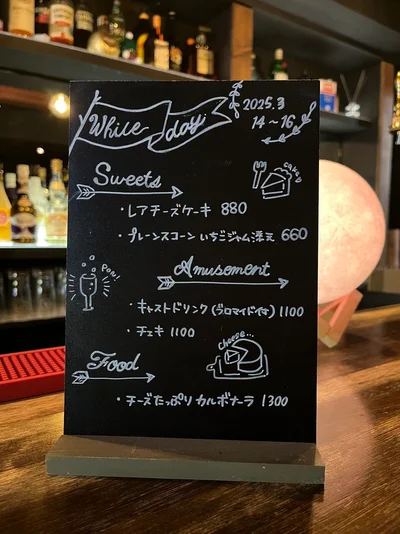 White day
2025.3
14~16
Sweets
cake♪
・レアチーズケーキ 880
・プレーンスコーン いちごジャム添え 660
Amusement
Pon!
・キャストドリンク (ブロマイド付) 1100
・チェキ 1100
Food
cheese...
・チーズたっぷり カルボナーラ 1300